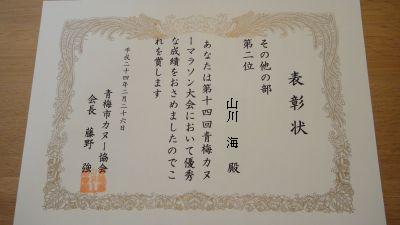 表彰状
その他の部
第二位
山川 海 殿
あなたは第十四回青梅カヌ
ーマラソン大会において優秀
な成績をおさめましたのでこ
れを賞します
平成二十四年二月二十六日
青梅市カヌー協会
会長 藤野 強